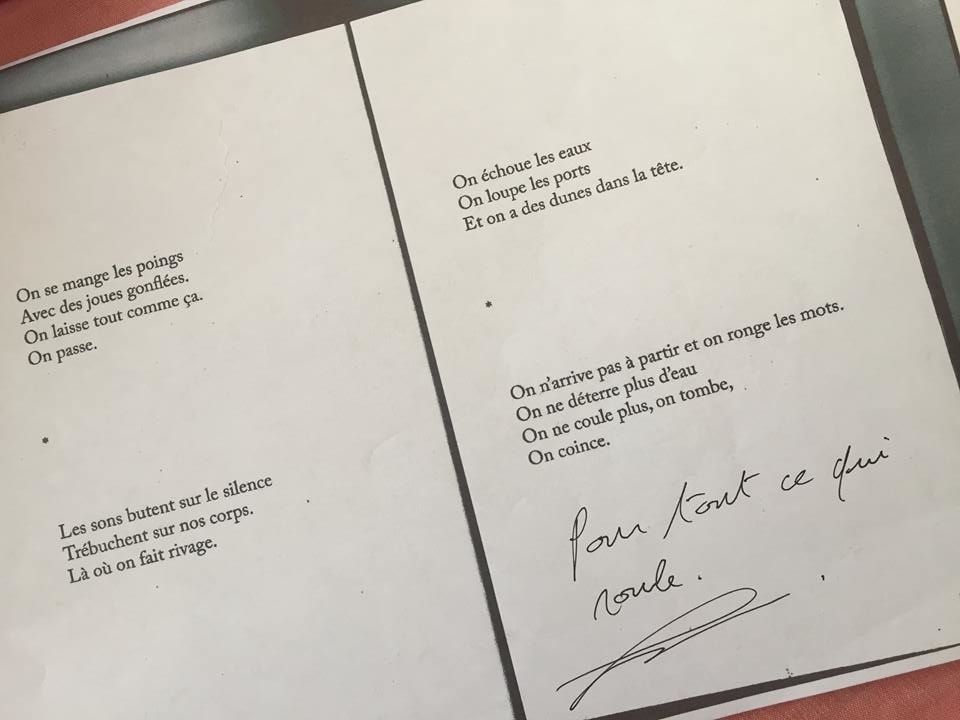 On se mange les poings
Avec des joues gonflées.
On laisse tout comme ça.
On passe.
*
Les sons butent sur le silence
Trébuchent sur nos corps.
Là où on fait rivage.
On échoue les eaux
On loupe les ports
Et on a des dunes dans la tête.
*
On n'arrive pas à partir et on ronge les mots.
On ne déterre plus d'eau
On ne coule plus, on tombe,
On coince.
Pour tout ce qui
roule.